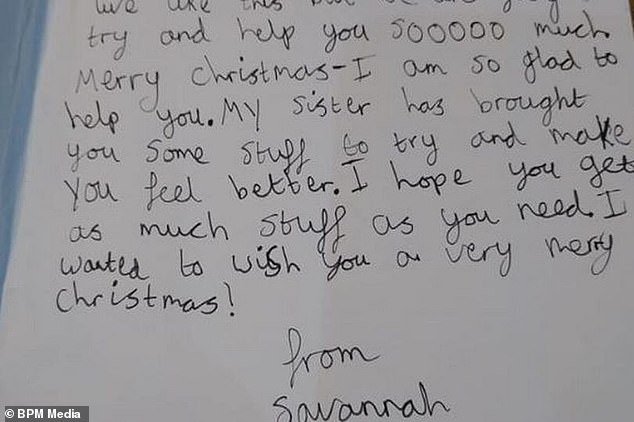 like this
try and help you sooooo much
Merry Christmas-I am so glad to
help you. My sister has brought
you some stuff to try and make
you feel better. I hope you get
as much stuff as you need. I
wanted to wish you a very merry
Christmas!
from
Savannah
© BPM Media